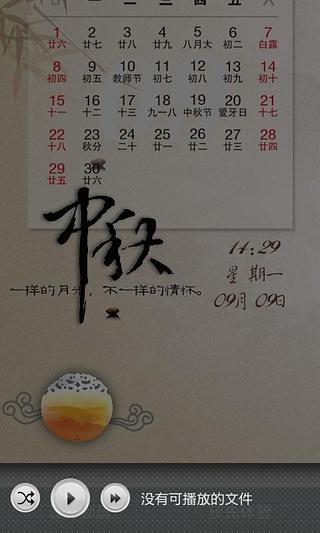 日 一 二 三 四 五 六
1 2 3 4 5 6 7
廿六 廿七 廿八 廿九 八月大 初二 白露
8 9 10 11 12 13 14
初四 初五 教师节 初七 初八 初九 初十
15 16 17 18 19 20 21
十一 十二 十三 九一八 中秋节 爱牙日 十七
22 23 24 25 26 27 28
十八 秋分 二十 廿一 廿二 廿三 廿四
29 30
廿五 廿六
中秋
14:29
星期一
一样的月光，不一样的情怀。
09月09日
没有可播放的文件